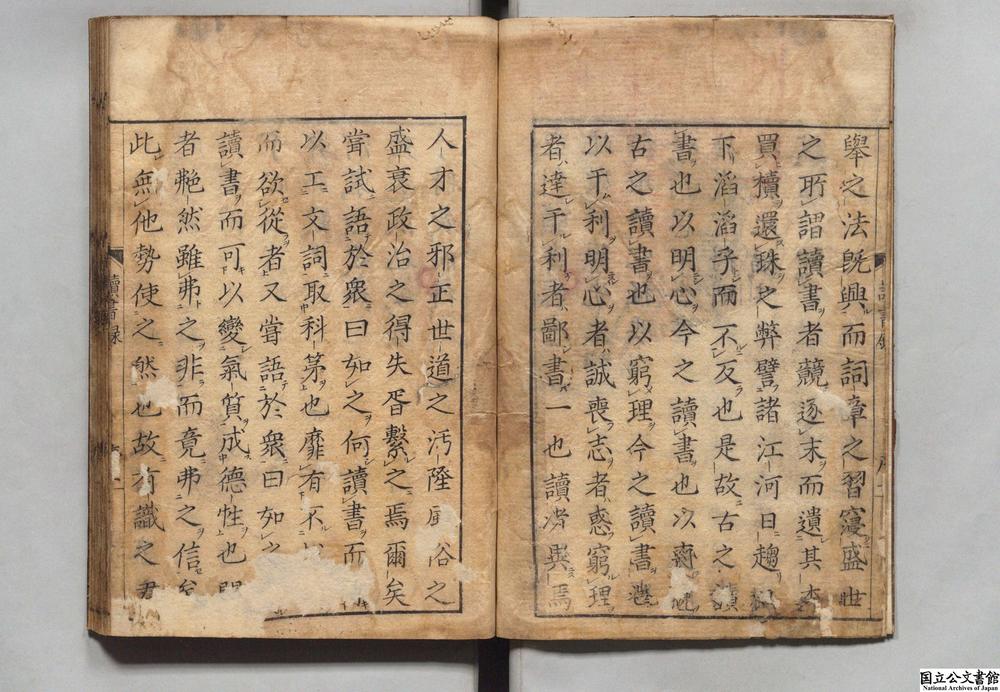 舉之法旣興而詞章之習寖盛世
之所謂讀書者競逐末而遺其本
買櫝還銖之弊譬諸江河日趨
下滔滔乎而不反也是故古之讀
書也以明心今之讀書也以
古之讀書也以窮理今之讀書也
以干利明心者誠喪志者惑窮理
者達干利者鄙書一也讀者異焉
人才之邪正世道之汚隆風俗之
盛衰政治之得失胥繫之焉爾矣
甞試語於衆曰如之何讀書而
以工文詞取科第也靡有不
而欲從者又甞語於衆曰如之
讀書而可以變氣質成德性也
者艴然雖弗之非而竟弗之信矣
此無他勢使之然也故有識之君
讀書録
国立公文書館
National Archives of Japan